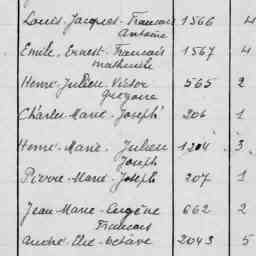 Louis-Jacques-Francois 1566 4
Antoine
Emile-Ernest-Francois 1567 4
Mathurile
Henri-Julien-Victor 565 2
Gregoire
Charles-Marie-Joseph 206 1
Henri-Marie-Julien 1204 3
Joseph
Pierre-Marie-Joseph 207 1
Jean-Marie-Eugène 662 2
Francois
André-Elie-Octave 2043 5